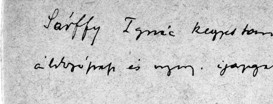 Sárffy Ignác kegyestan
áldozópap és nyug. igazga